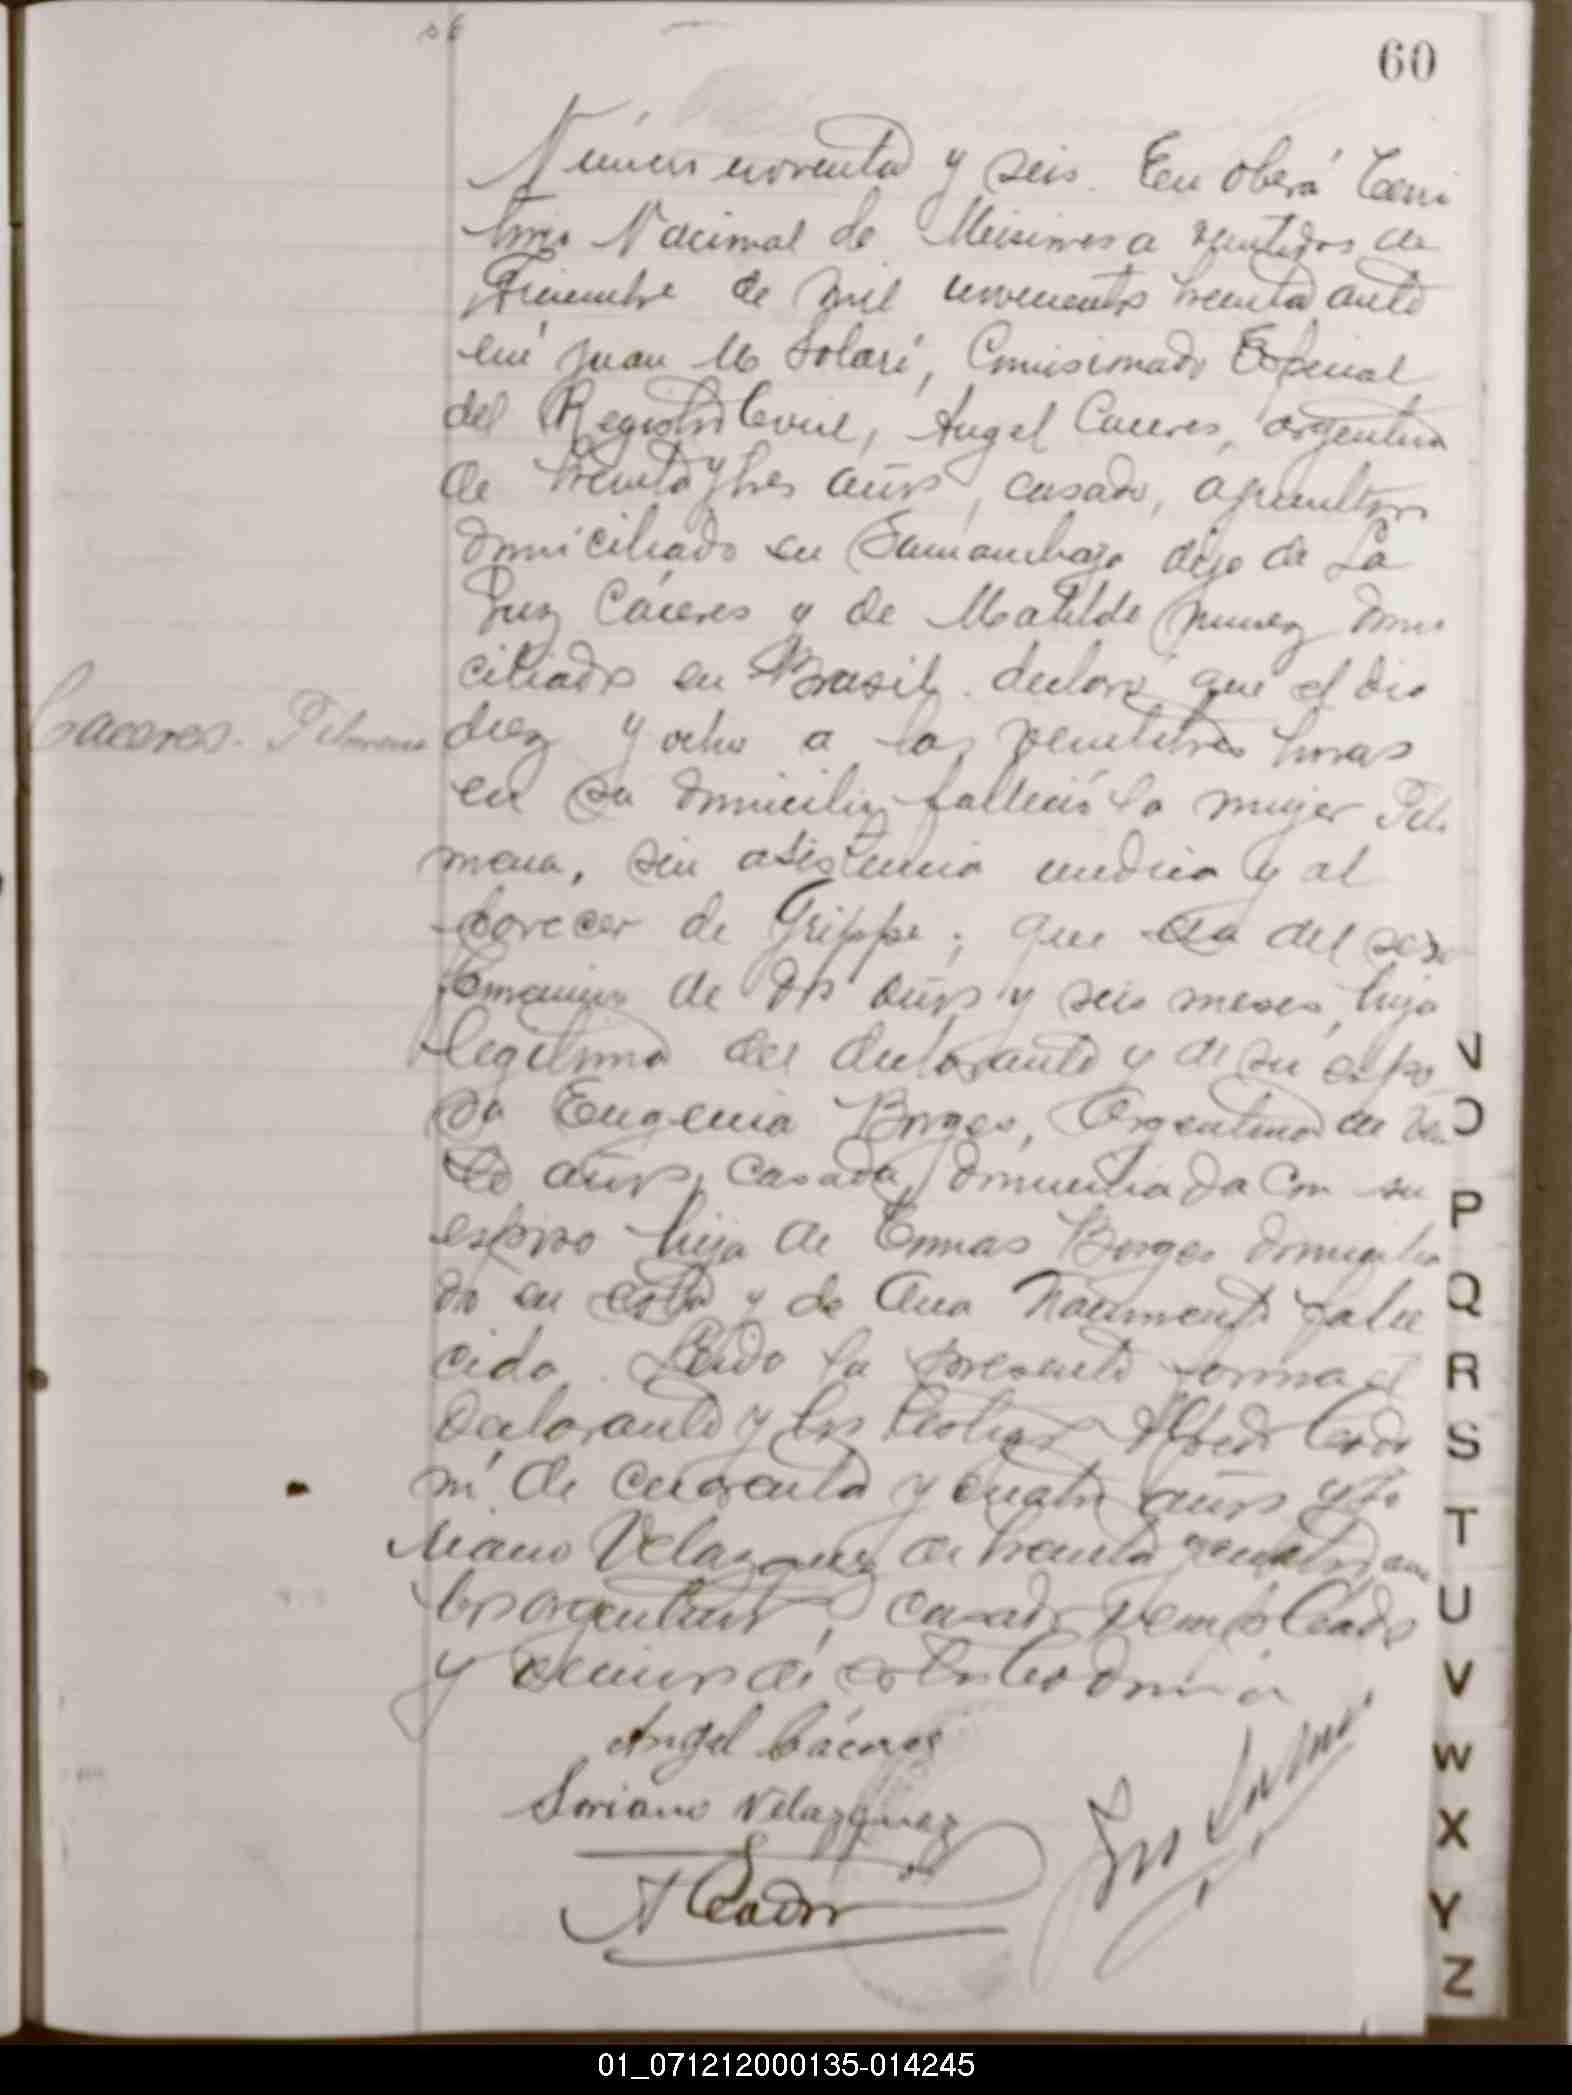 96
60
Número noventa y seis. En Oberá Terri
torio Nacional de Misiones a veintidos de
Diciembre de mil novecientos treinta ante
mi Juan M Solari, Comisionado Especial
del Registro Civil, Angel Caceres, argentino
de treinta y tres años, casado, agricultor
domiciliado en hijo de La
Luz Cáceres y de Matilde domi
ciliado en Brasil declaró que el dia
Caceres. Filomena
diez y ocho a las veintitres horas
en su domicilio falleció la mujer Filo
mena, sin asistencia medica y al
parecer de Grippe; que era del sexo
femenino de dos años y seis meses, hija
legitima del declarante y de su espo
sa Eugenia Borges, Argentina de
años, casada, domiciliada con su
esposo hija de Borges domicilia
do en esta y de Ana Nacimento falle
cida. Leida la presente firma el
declarante y los testigos
de cuarenta y cuatro años y So
riano Velazquez de treinta y cuatro am
bos argentinos, casados, empleados
y vecinos de esta
Angel Cáceres
Soriano Velazquez
N
O
P
Q
R
S
T
U
V
W
X
Y
Z
01_071212000135-014245